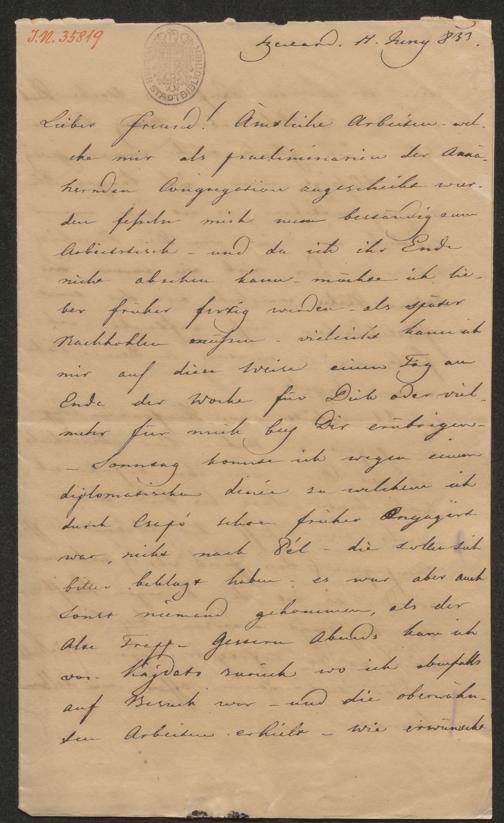 J.N. 35819
STADTBIBLIOTHEK
Szexard. 11 Juny 833.
Lieber Freund! Ämtliche Arbeiten wel-
che mir als praeliminarien der Annä-
hernden Congregation zugeschickt wur-
den fesseln mich nun beständig am
Arbeitstisch – und da ich ihr Ende
nicht absehen kann – möchte ich lie-
ber früher fertig werden – als später
Nachhohlen müssen – vieleicht kann ich
mir auf diese Weise einen Tag am
Ende der Woche für Dich oder viel-
mehr für mich bey Dir erübrigen –
– Sonntag konnte ich wegen einem
diplomatischen dinée zu welchem ich
durch Csapó schon früher Engagirt
war, nicht nach Pél – die sollen sich
bitter beklagt haben – es war aber auch
sonst niemand gekommen, als der
Alte Trapp – Gestern Abends kam ich
von Kajdats zurück wo ich ebenfalls
auf Besuch war – und die oberwähn-
ten Arbeiten erhielt – wie erwünscht